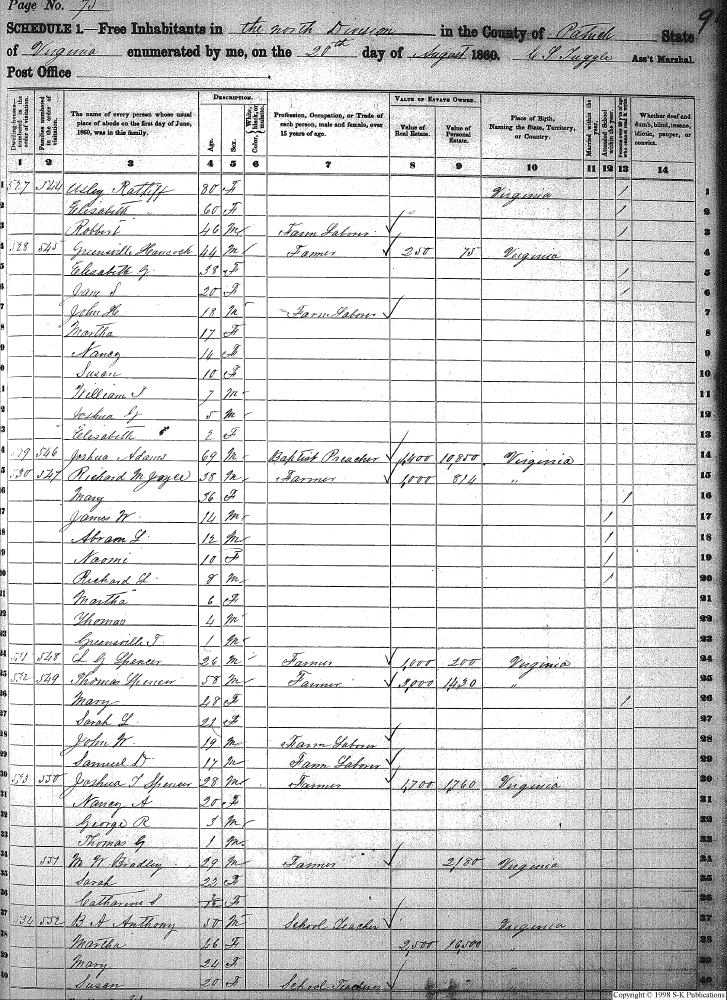 Page No. 75
SCHEDULE 1.—Free Inhabitants in the north Division in the County of Patrick State
of Virginia enumerated by me, on the 20th day of August 1860. Ass't Marshal.
Post Office
DESCRIPTION. VALUE OF ESTATE OWNED.
Dwelling-houses—numbered in the order of visitation. Families numbered in the order of visitation. The name of every person whose usual place of abode on the first day of June, 1860, was in this family. Age. Sex. Color, White, black, or mulatto. Profession, Occupation, or Trade of each person, male and female, over 15 years of age. Value of Real Estate. Value of Personal Estate. Place of Birth, Naming the State, Territory, or Country. Married within the year. Attended School within the year. Whether deaf and dumb, blind, insane, idiotic, pauper, or convict.
1 2 3 4 5 6 7 8 9 10 11 12 13 14
527 544 Ratliff 80 F Virginia / 1
Elisabeth " 60 F / 2
Robbert 46 M Farm Laborer / 3
528 545 Greensville Hancock 44 M Farmer 250 75 Virginia 4
Elisabeth G. 38 F / 5
Jane S 20 F / 6
John H 18 M Farm Laborer 7
Martha 17 F 8
Nancy 14 F 9
Susan 10 F 10
William J 7 M 11
Joshua G 5 M 12
Elisabeth 2 F 13
529 546 Joshua Adams 69 M Baptist Preacher 4,400 10,850 Virginia 14
530 547 Richard M Joyce 38 M Farmer 1,000 814 " 15
Mary 36 F / 16
James W. 14 M / 17
Abram L. 12 M / 18
Naomi 10 F / 19
Richard H. 8 M / 20
Martha 6 F 21
Thomas 4 M 22
Greensville T. 1 M 23
531 548 L G Spencer 26 M Farmer 1,000 200 Virginia 24
532 549 Thomas Spencer 58 M Farmer 3,000 1,430 " 25
Mary 48 F / 26
Sarah L. 22 F 27
John W. 19 M Farm Laborer 28
Samuel D. 17 M Farm Laborer 29
533 550 Joshua T Spencer 28 M Farmer 1,700 1,760 Virginia 30
Nancy A 20 F 31
George R 3 M 32
Thomas G 1 M 33
551 W W Bradley 29 M Farmer 2,180 Virginia 34
Sarah 22 F 35
Catharine S F 36
534 552 B A Anthony 50 M School Teacher Virginia 37
Martha 46 F 2,500 16,500 38
Mary 24 F " 39
Susan 20 F School Teacher " 40
Copyright © 1998 S-K Publications